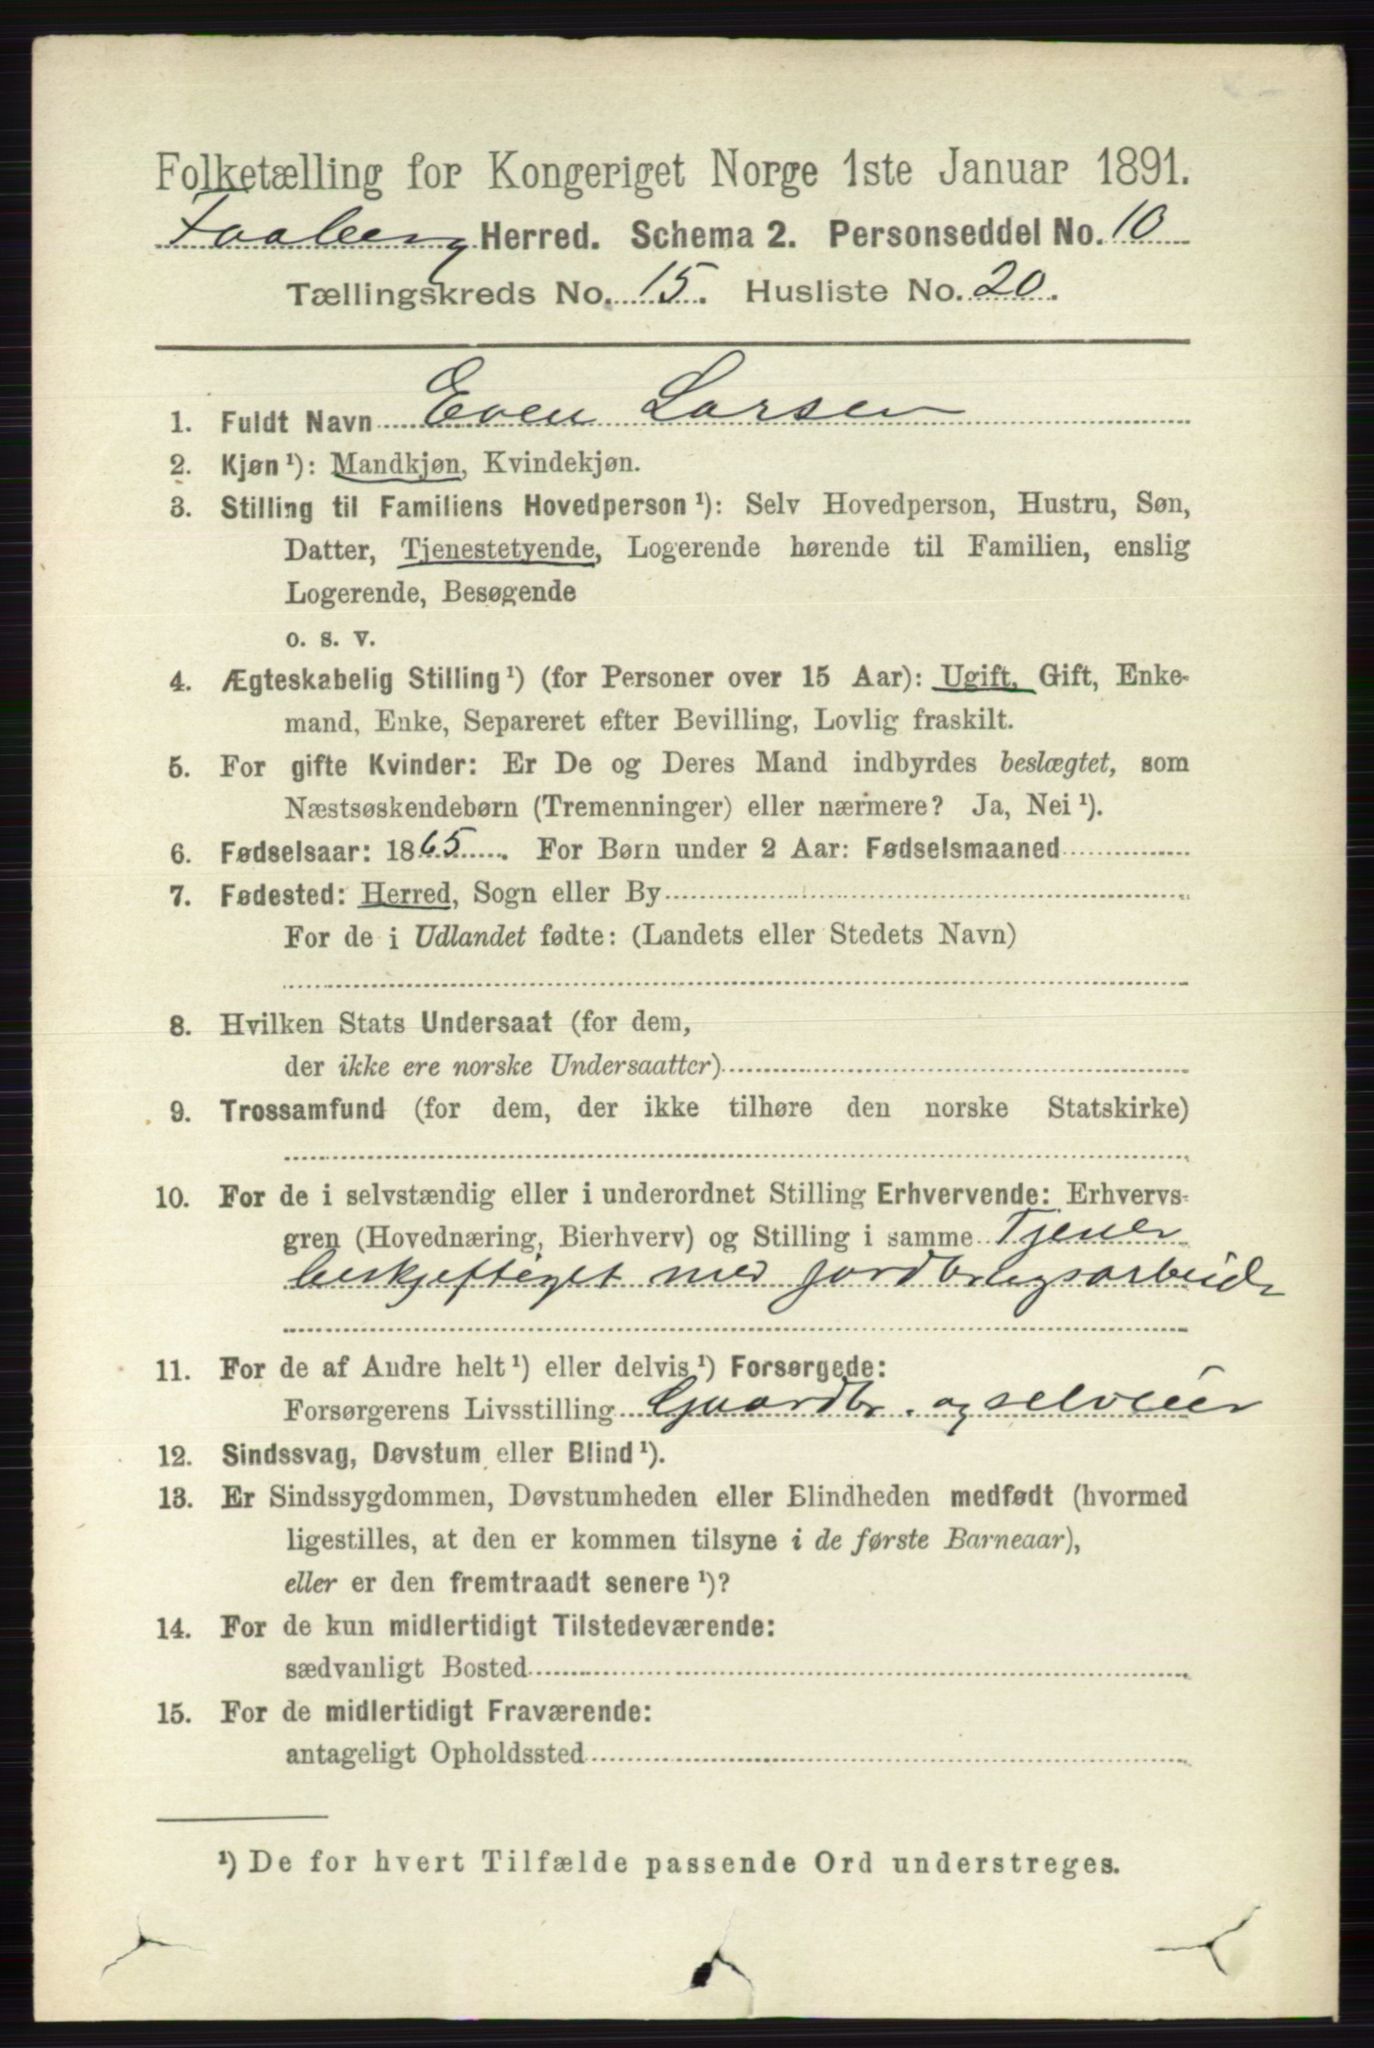 Folketælling for Kongeriget Norge 1ste Januar 1891.
Faaberg Herred. Schema 2. Personseddel No. 10
Tællingskreds No. 15. Husliste No. 20.
1. Fuldt Navn Even Larsen
2. Kjøn ¹): Mandkjøn, Kvindekjøn.
3. Stilling til Familiens Hovedperson ¹): Selv Hovedperson, Hustru, Søn,
Datter, Tjenestetyende, Logerende hørende til Familien, enslig
Logerende, Besøgende
o. s. v.
4. Ægteskabelig Stilling ¹) (for Personer over 15 Aar): Ugift, Gift, Enke-
mand, Enke, Separeret efter Bevilling, Lovlig fraskilt.
5. For gifte Kvinder: Er De og Deres Mand indbyrdes beslægtet, som
Næstsøskendebørn (Tremenninger) eller nærmere? Ja, Nei ¹).
6. Fødselsaar: 1865. For Børn under 2 Aar: Fødselsmaaned
7. Fødested: Herred, Sogn eller By
For de i Udlandet fødte: (Landets eller Stedets Navn)
8. Hvilken Stats Undersaat (for dem,
der ikke ere norske Undersaatter)
9. Trossamfund (for dem, der ikke tilhøre den norske Statskirke)
10. For de i selvstændig eller i underordnet Stilling Erhvervende: Erhvervs-
gren (Hovednæring, Bierhverv) og Stilling i samme Tjener
beskjeftiget med jordbrugsarbeide
11. For de af Andre helt ¹) eller delvis ¹) Forsørgede:
Forsørgerens Livsstilling Gaardbr. og selveier
12. Sindssvag, Døvstum eller Blind ¹).
13. Er Sindssygdommen, Døvstumheden eller Blindheden medfødt (hvormed
ligestilles, at den er kommen tilsyne i de første Barneaar),
eller er den fremtraadt senere ¹)?
14. For de kun midlertidigt Tilstedeværende:
sædvanligt Bosted
15. For de midlertidigt Fraværende:
antageligt Opholdssted
¹) De for hvert Tilfælde passende Ord understreges.